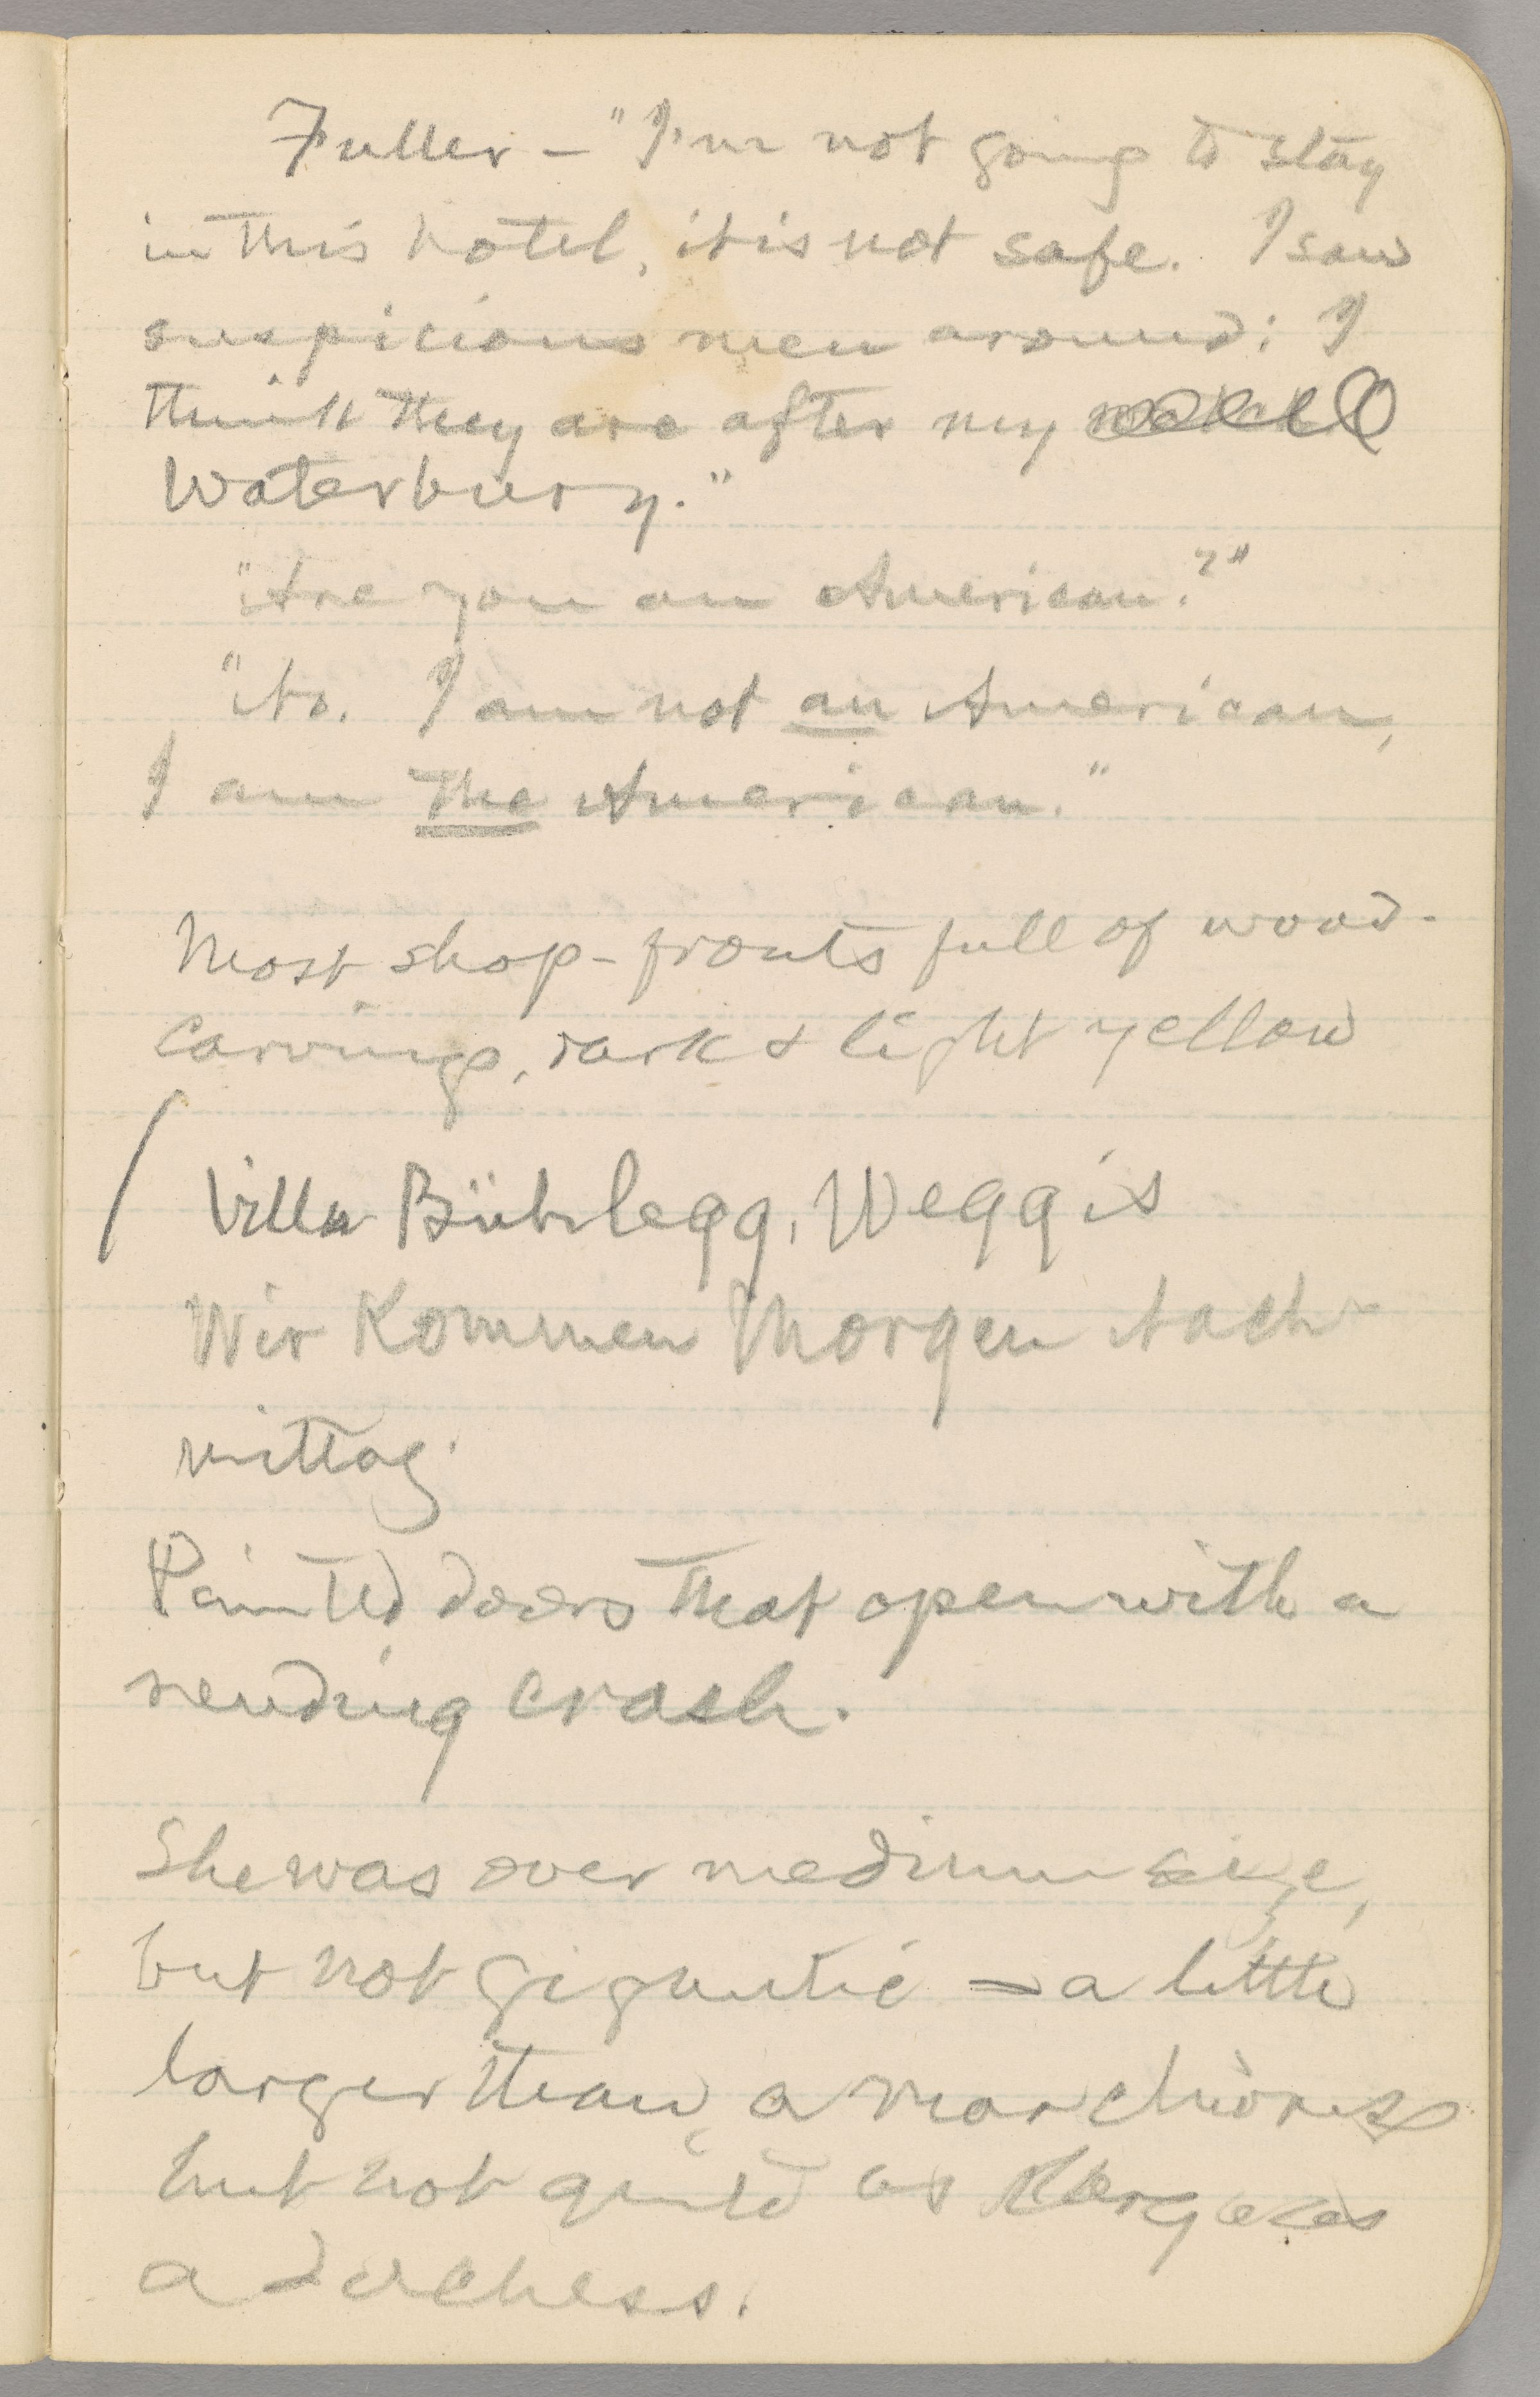 Fuller – "I'm not going to stay
in this hotel, it is not safe. I saw
suspicious men around: I
think they are after my
Waterbury."
"Are you an American?"
"No. I am not an American,
I am the American."
Most shop-fronts full of wood-
carvings, dark & light yellow
Villa Bühlegg, Weggis
Wir Kommen Morgen Nach-
mittag.
Painted doors that open with a
rending crash.
She was over medium size,
but not gigantic – a little
larger than a marchioness
but not quite as large as
a duchess.